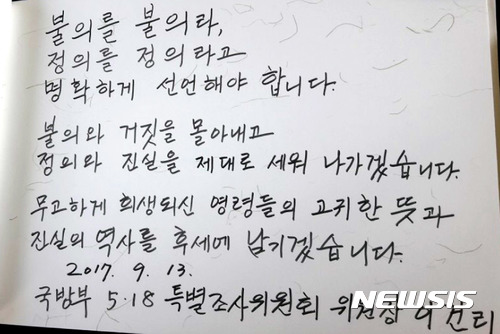 불의를 불의라,
정의를 정의라고
명확하게 선언해야 합니다.
불의와 거짓을 몰아내고
정의와 진실을 제대로 세워 나가겠습니다.
무고하게 희생되신 영령들의 고귀한 뜻과
진실의 역사를 후세에 남기겠습니다.
2017. 9. 13.
국방부 5·18 특별조사위원회 위원장 이건리
NEWSIS